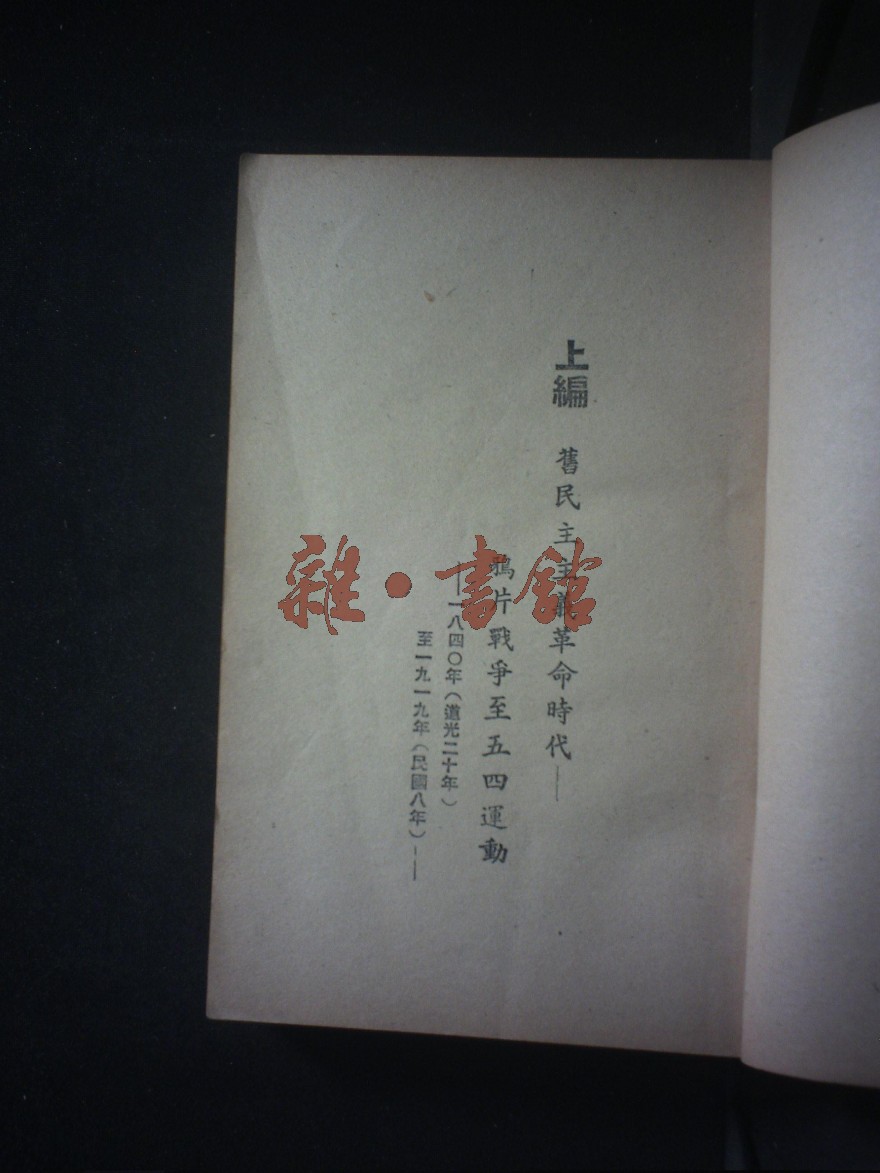 上編　舊民主主義革命時代——
鴉片戰爭至五四運動
——一八四〇年（道光二十年）
至一九一九年（民國八年）——
雜·書館